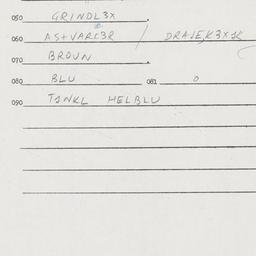 050 GRINDL3X
060 AS+VARC3R / DRAJE,K3X1K
070 BROUN
080 BLU 081 0
090 T3NKL HELBLU